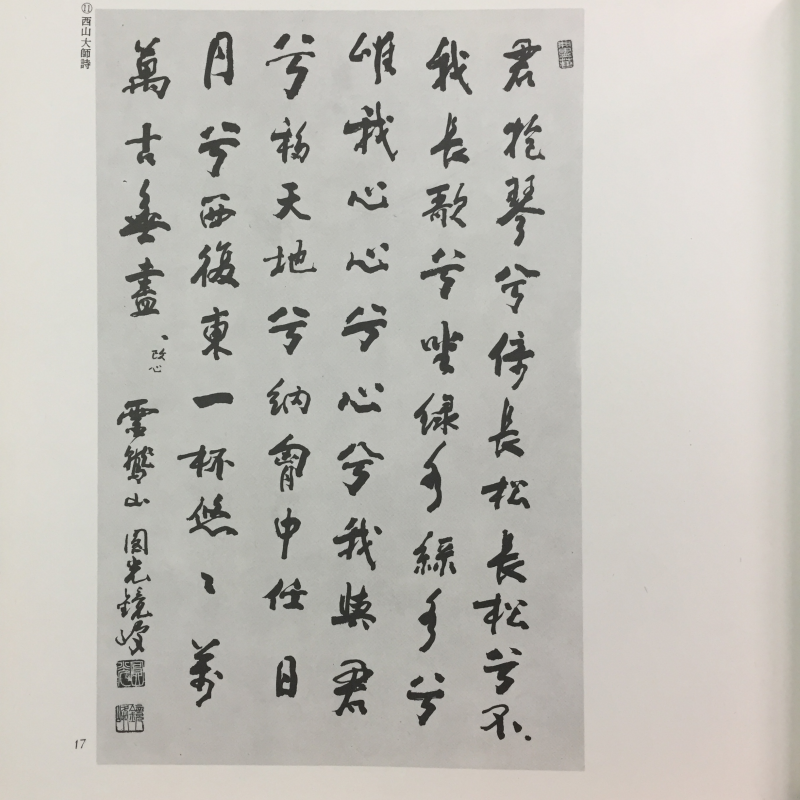 ⑪西山大師詩
君抱琴兮倚長松長松兮不
我長歌兮坐綠水綠水兮
唯我心心兮心兮我與君
兮移天地兮納胷中任日
月兮西復東一杯悠〻萬
萬古無盡、改心
雲鷲山 圓光鏡峰
17